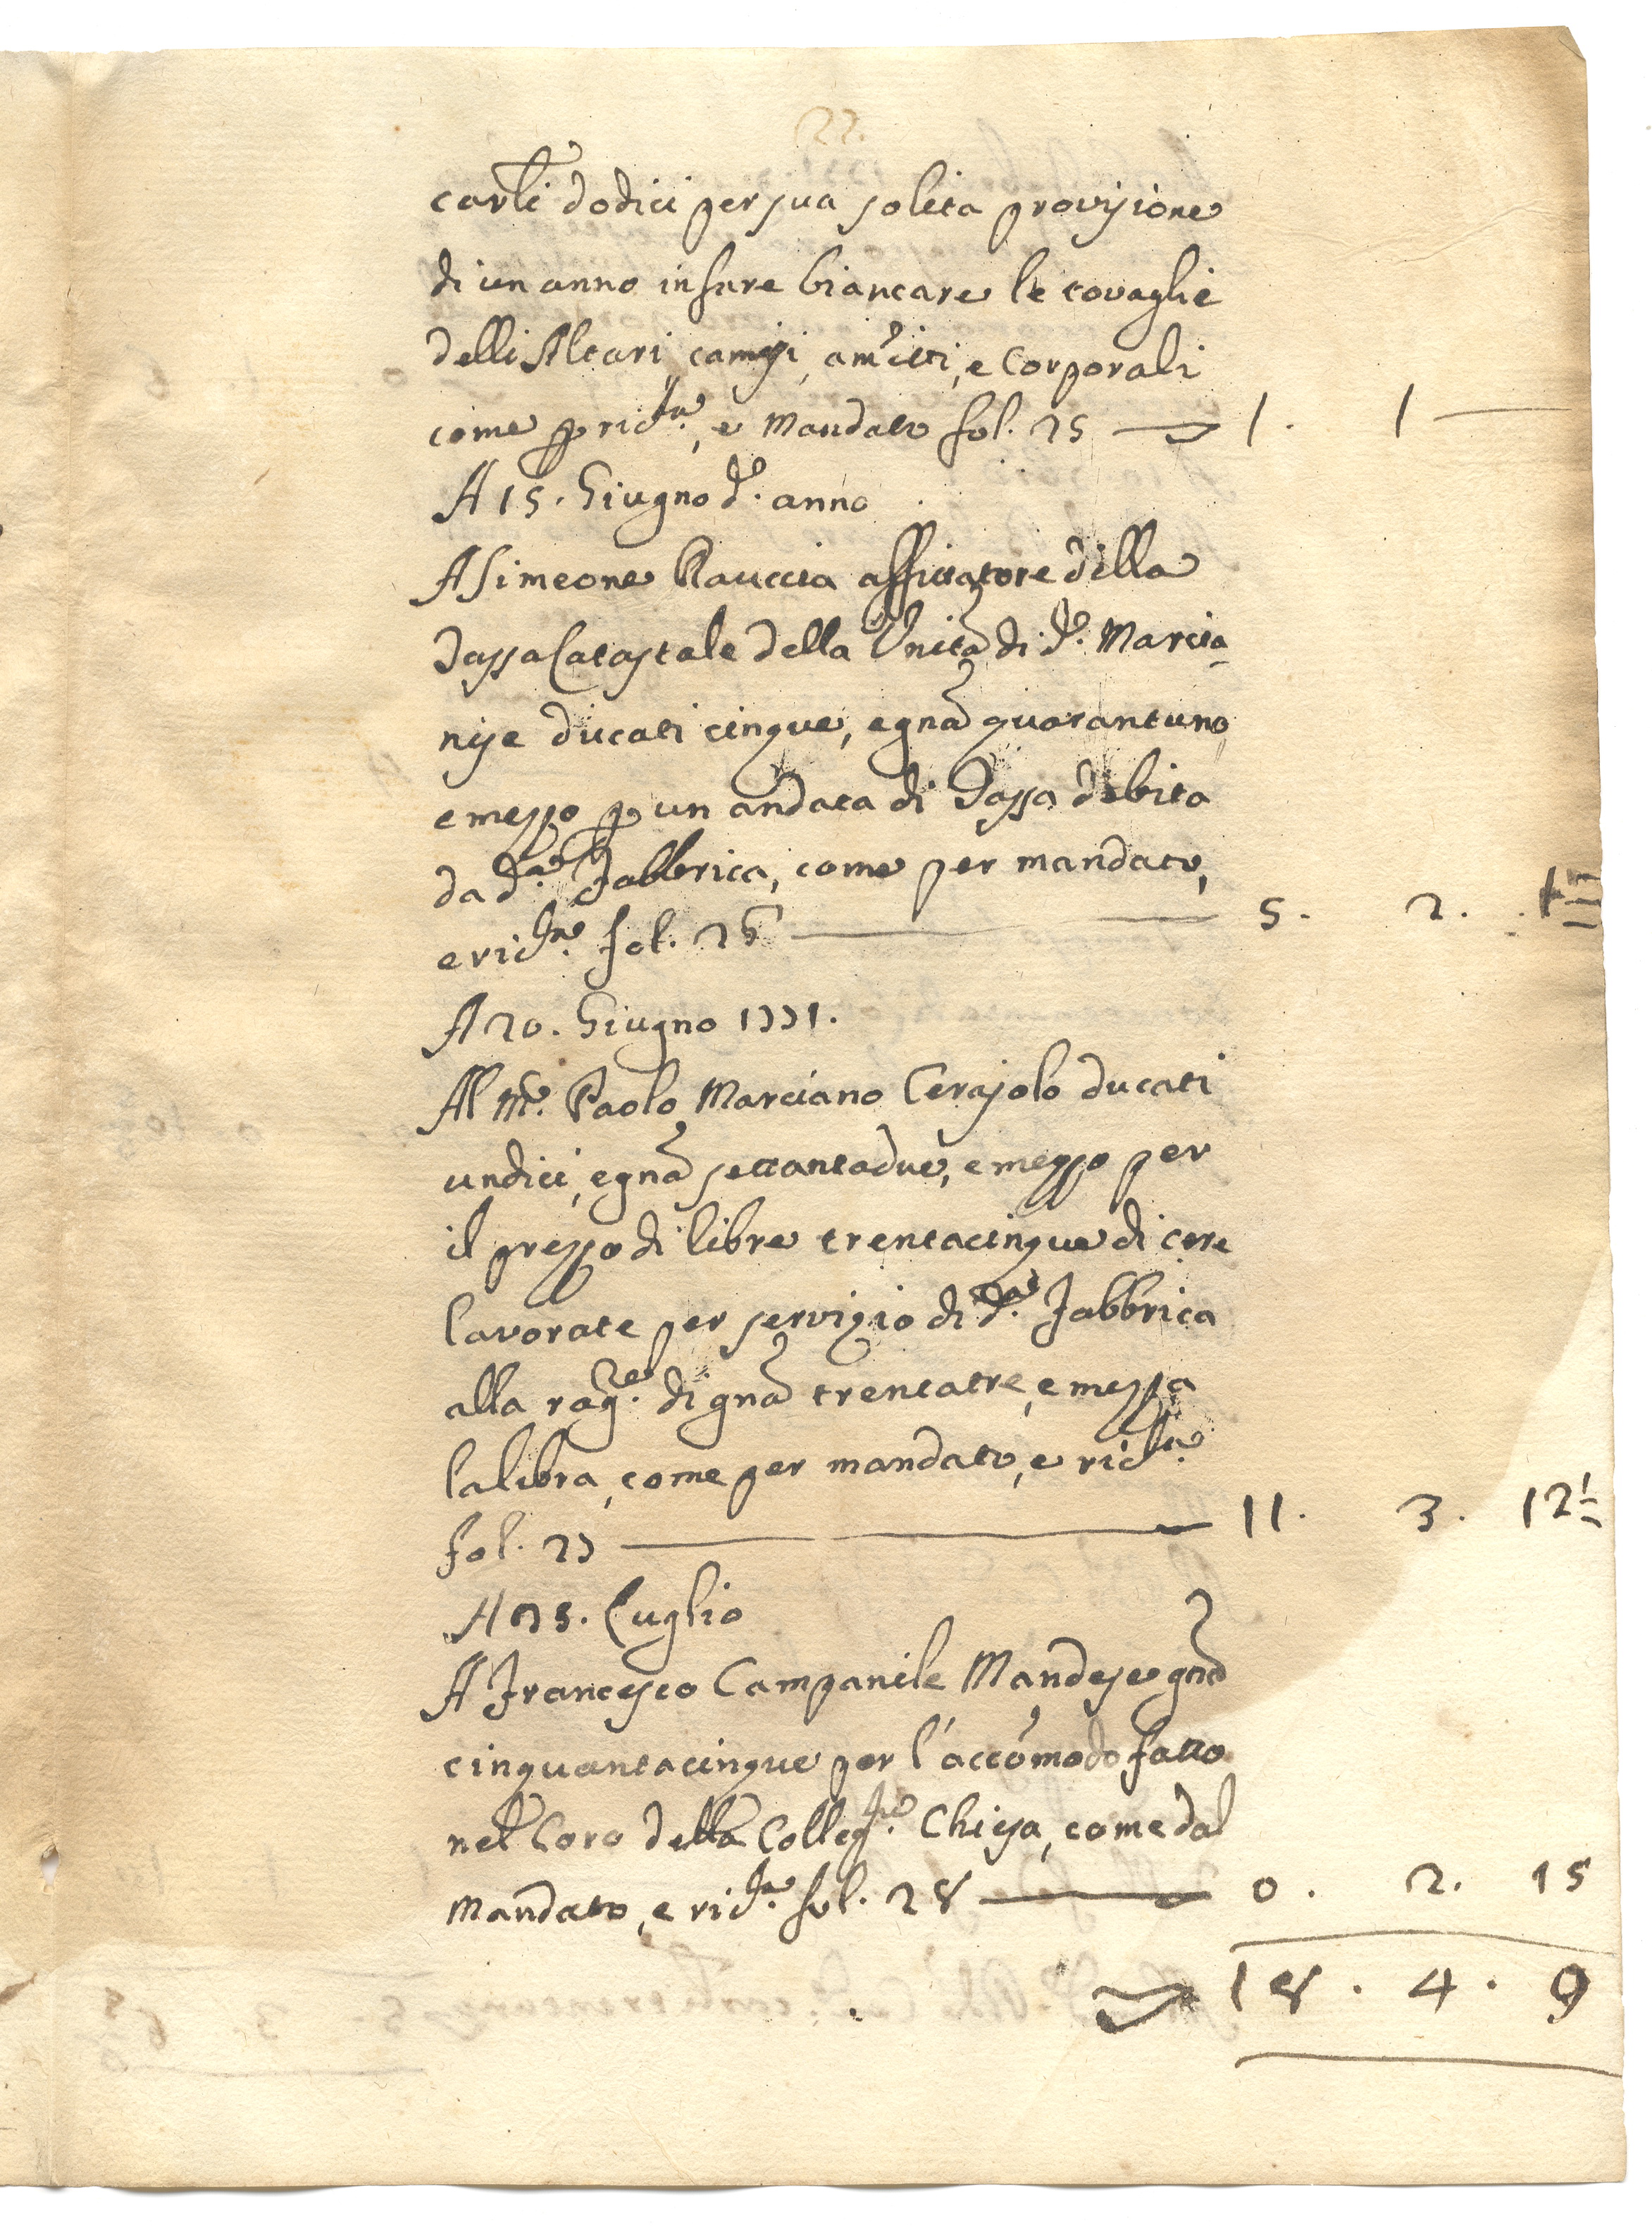 22.
carlī dodici per sua solita provisione
di un anno in fare biancare le tovaglie
delli Altari, camisi, am̄itti, e Corporali
come ꝑ ric.ta, e Mandato fol. 25 — 1. 1 —
A 15. Giugno d.o anno
A Simeone Rauccia affittatore della
Tassa Catastale della Unitā di d.o Marcia-
nise ducati cinque, e gnā quarantuno,
e mezzo ꝑ un andata di Tassa debita
da d.a Fabbrica, come per mandato,
e ric.ta fol. 26 — 5. 2. 1½
A 20. Giugno 1771.
Al M.co Paolo Marciano Cerajolo ducati
undici, e gnā settantadue, e mezzo per
il prezzo di libre trentacinque di cere
lavorate per servizio di d.a Fabbrica
alla rag.ne di gnā trentatre, e mezza
la libra, come per mandato, e ric.ta
fol. 27 — 11. 3. 12½
A 25. Luglio
A Francesco Campanile Mandese gnā
cinquantacinque per l'accōmodo fatto
nel Coro della Colleg.ta Chiesa, come dal
Mandato, e ric.ta fol. 28 — 0. 2. 15
18. 4. 9